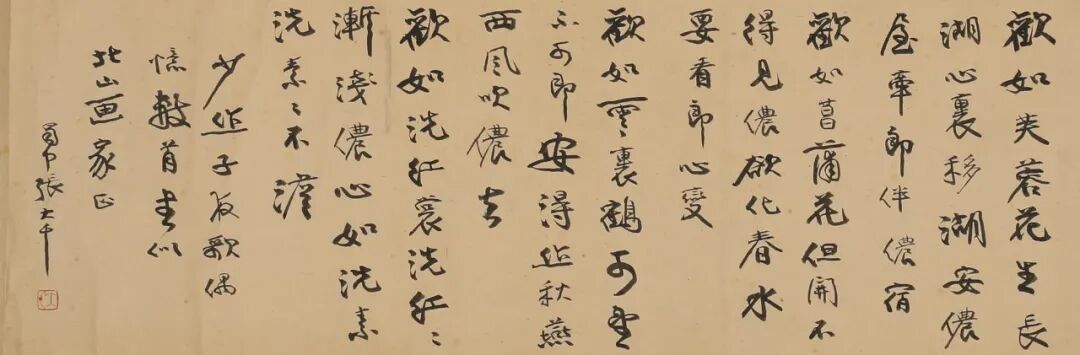 歡如芙蓉花生長
湖心裏移湖安儂
屋牽郎伴儂宿
歡如菖蒲花但開不
得見儂欲化春水
要看郎心變
歡如雲裏鶴可望
不可即安得作秋燕
西風吹儂去
歡如洗紅裳洗紅〻
漸淺儂心如洗素
洗素〻不
少作子夜歌偶
憶數首書似
北山画家正
蜀中張大千